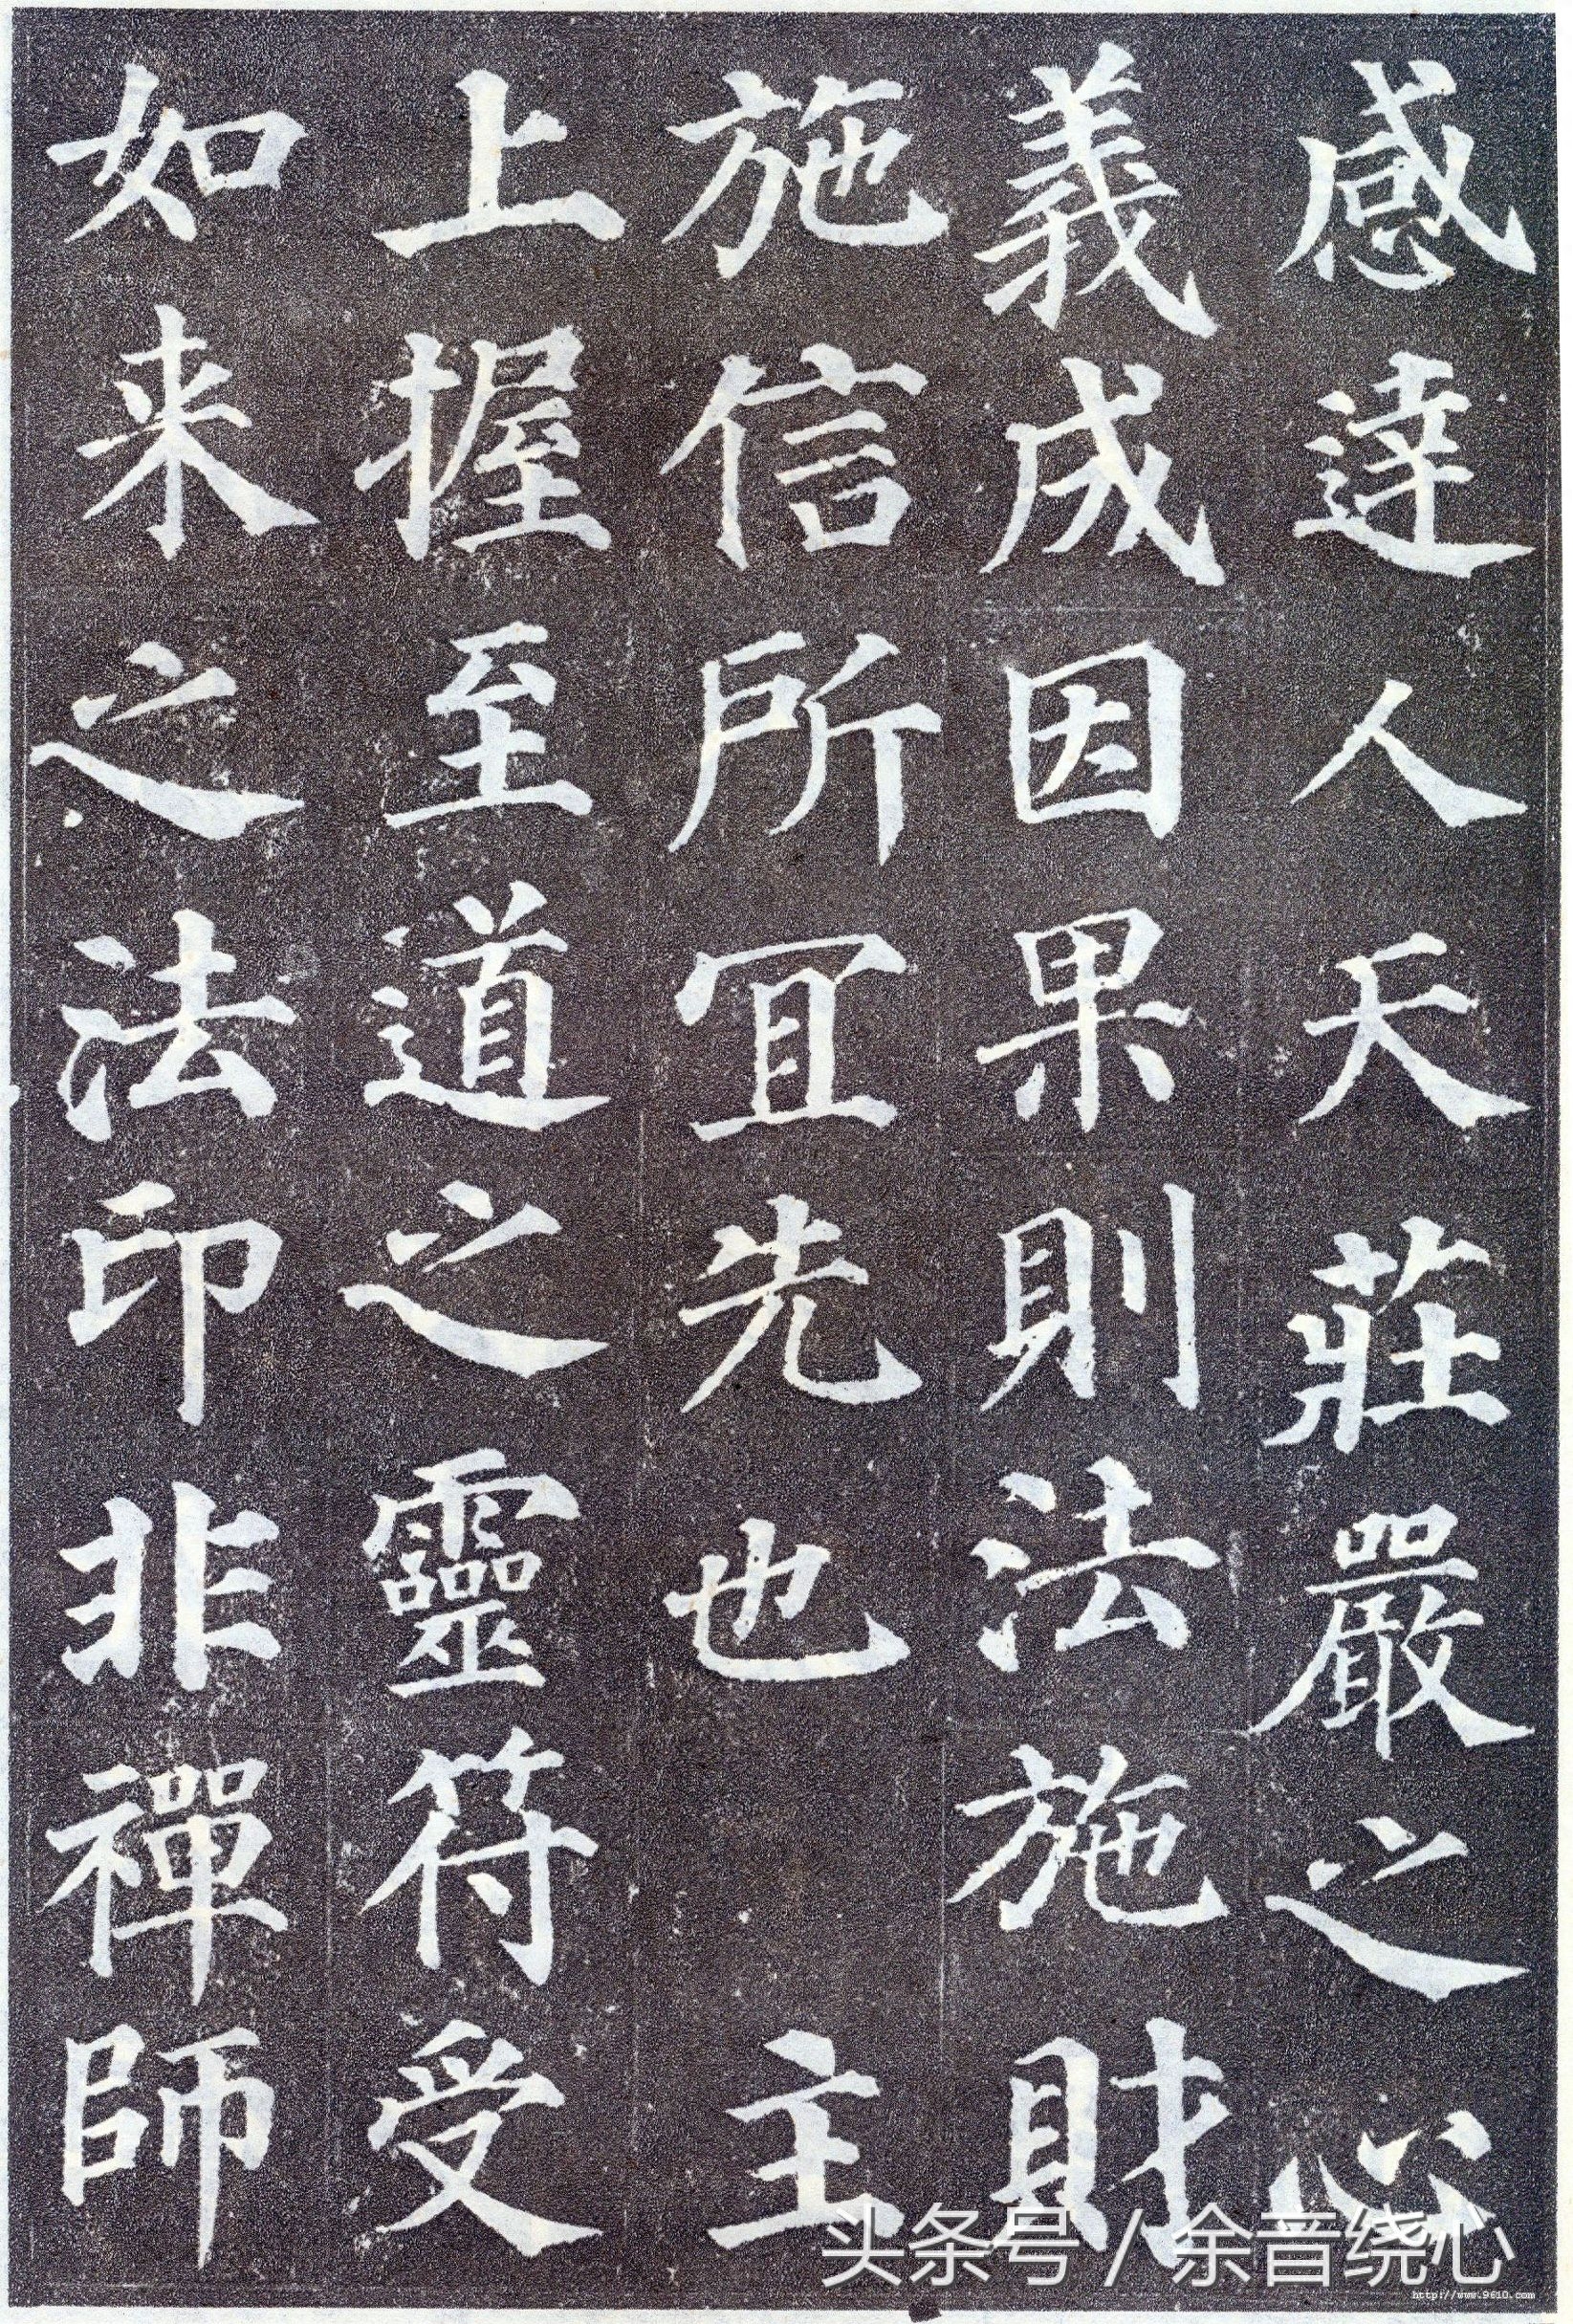 感達人天莊嚴之心
義成因果則法施財
施信所宜先也　主
上握至道之靈符受
如来之法印非禪師
头条号 / 余音绕心
http://www.9610.com